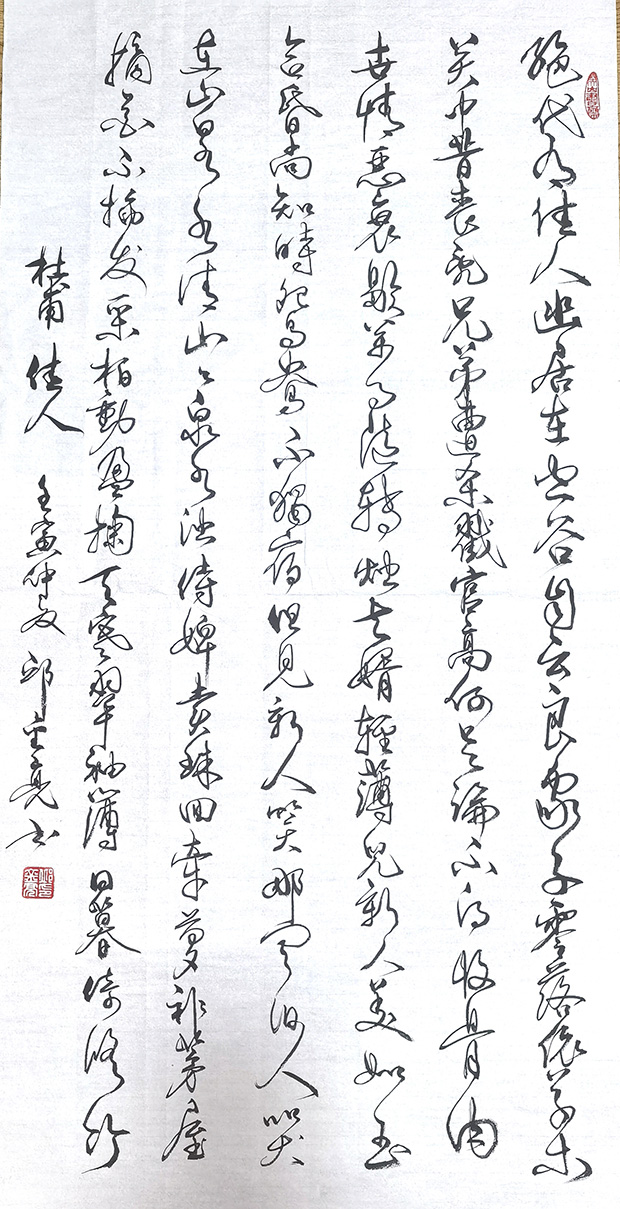 絶代有佳人幽居在空谷自云良家子零落依草木
关中昔丧乱兄弟遭杀戮官高何足論不得收骨肉
世情惡衰歇萬事隨轉燭夫婿輕薄兒新人美如玉
合昏尚知時鸳鴦不獨宿但見新人笑那闻旧人哭
在山泉水清出山泉水浊侍婢賣珠回牽萝補茅屋
摘花不插发采柏動盈掬天寒翠袖薄日暮倚修竹
杜甫佳人 壬寅仲夏 邱亮书